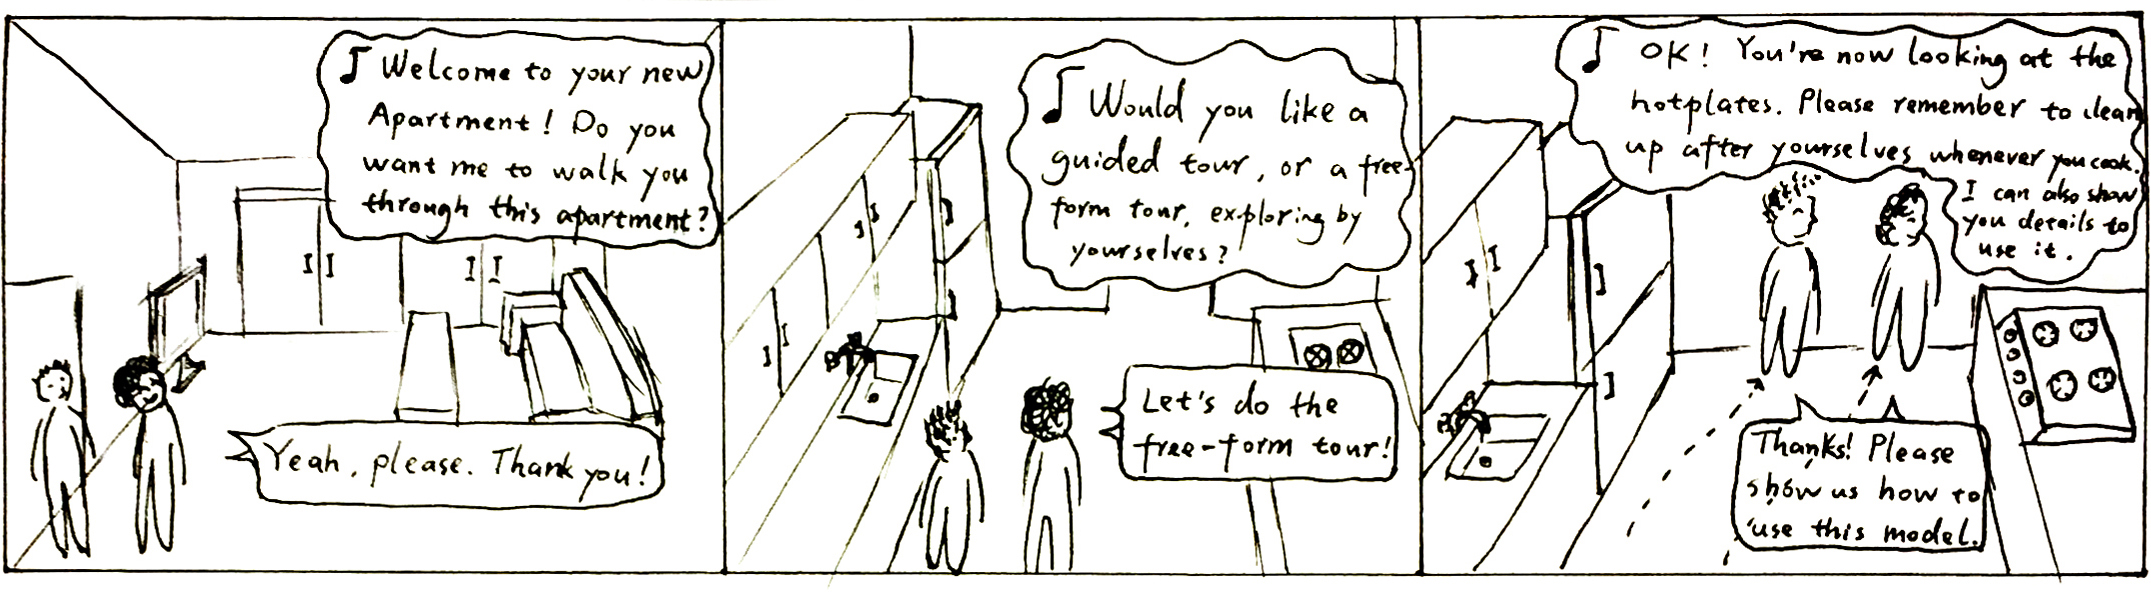 ♪ Welcome to your new
Apartment! Do you
want me to walk you
through this apartment?
Yeah, please. Thank you!
♪ Would you like a
guided tour, or a free-
form tour, exploring by
yourselves?
Let's do the
free-form tour!
♪ OK! You're now looking at the
hotplates. Please remember to clean
up after yourselves whenever you cook.
I can also show
you details to
use it.
Thanks! Please
show us how to
use this model.